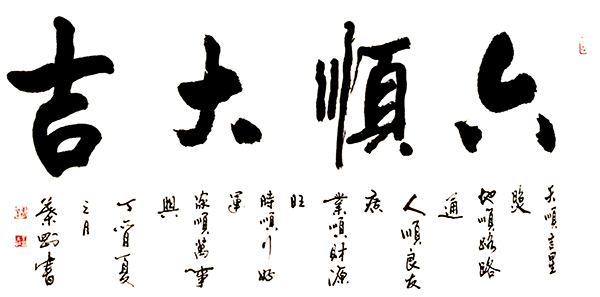 六順大吉
天順吉星
照
地順路路
通
人順良友
業順財源
旺
時順行好
運
家順萬事
興
丁酉夏
月
書